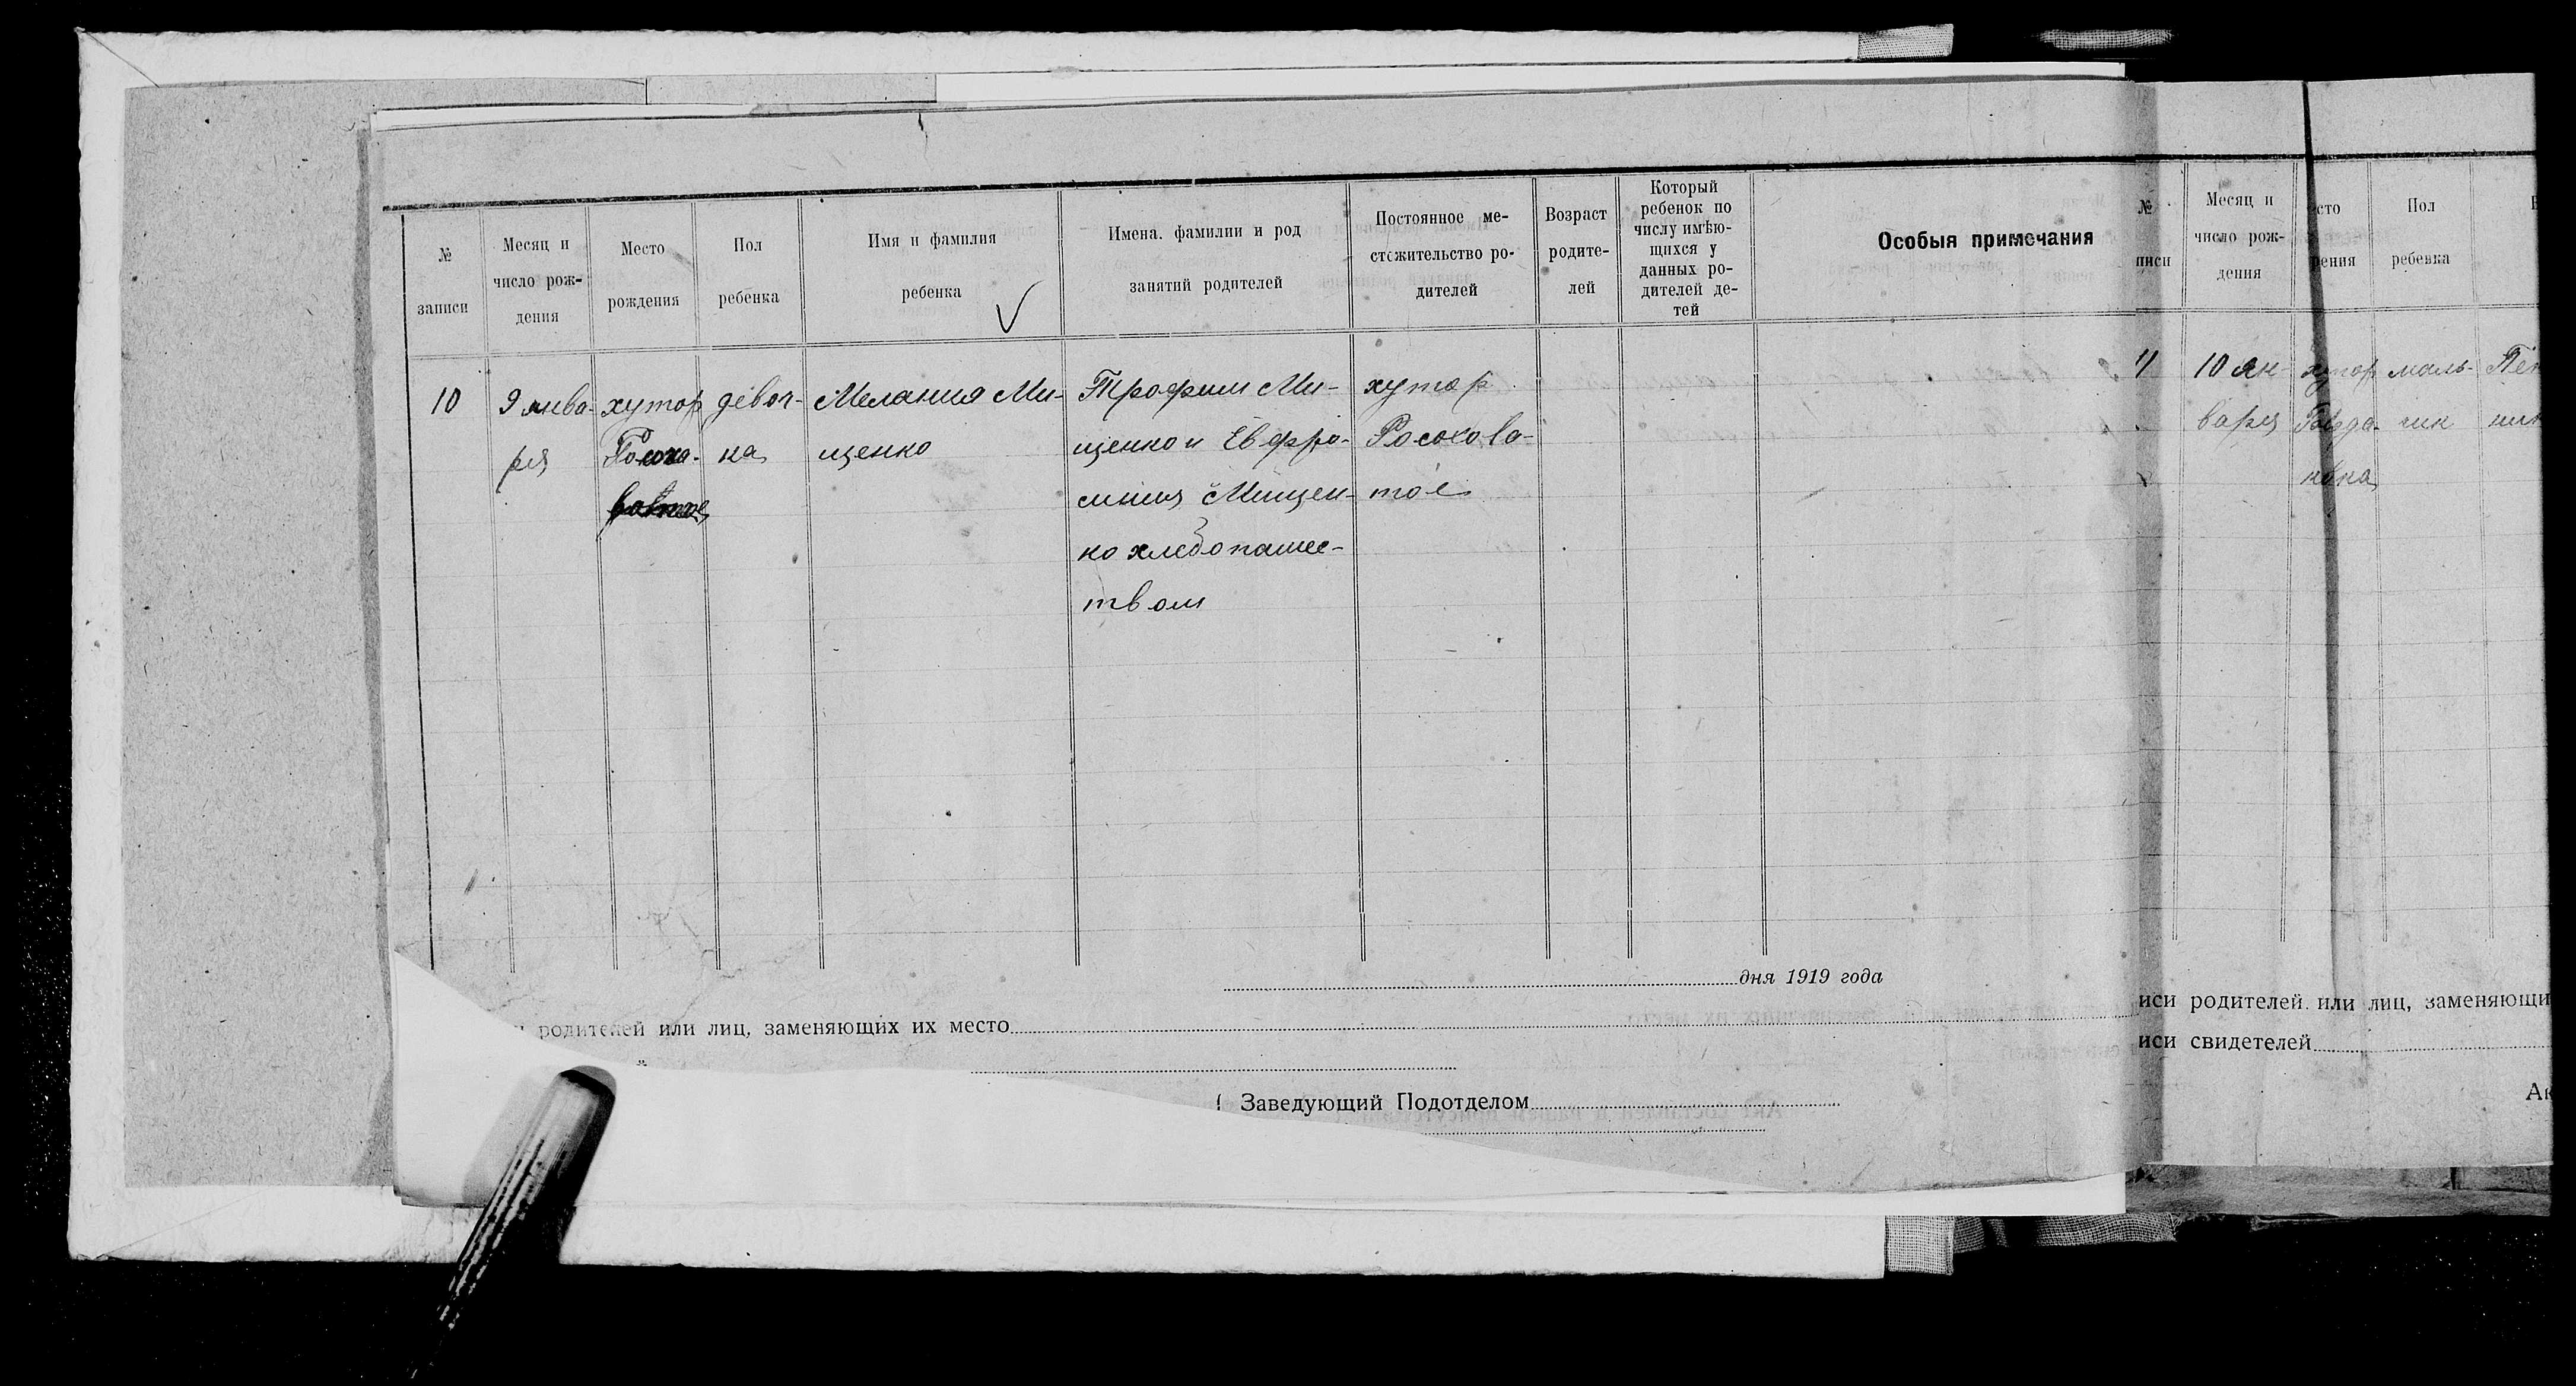 № записи
Месяц и число рож-дения
Место рождения
Пол ребенка
Имя и фамилия ребенка
Имена. фамилии и род занятий родителей
Постоянное ме-стожительство ро-дителей
Возраст родите-лей
Который ребенок по числу имѣю-щихся у данных ро-дителей де-тей
Особыя примечания
10
9 янва-
ря
хутор
девоч-
ка
Мелания Ми-
щенко
Трофим Ми-
щенко и Евфро-
синия Мищен-
ко хлебопашес-
твом
хутор
Росохова-
тое
дня 1919 года
родителей или лиц, заменяющих их место
Заведующий Подотделом
№
писи
Месяц и
число рож-
дения
сто
рения
Пол
ребенка
11
10 Ян-
варя
хутор
маль-
чик
иси родителей или лиц, заменяющи
иси свидетелей
Ак